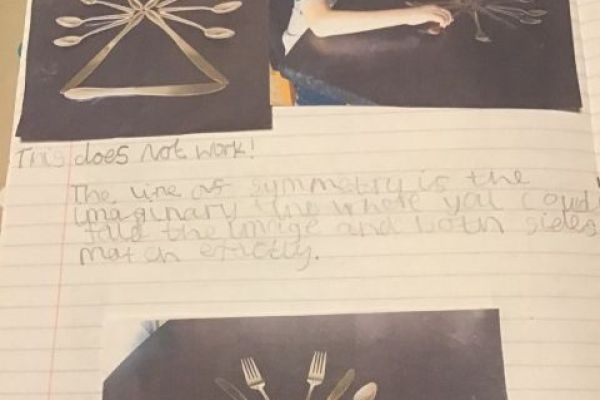 This does not work!
The line of symmetry is the
imaginary line where you could
fold the image and both sides
match efictly.